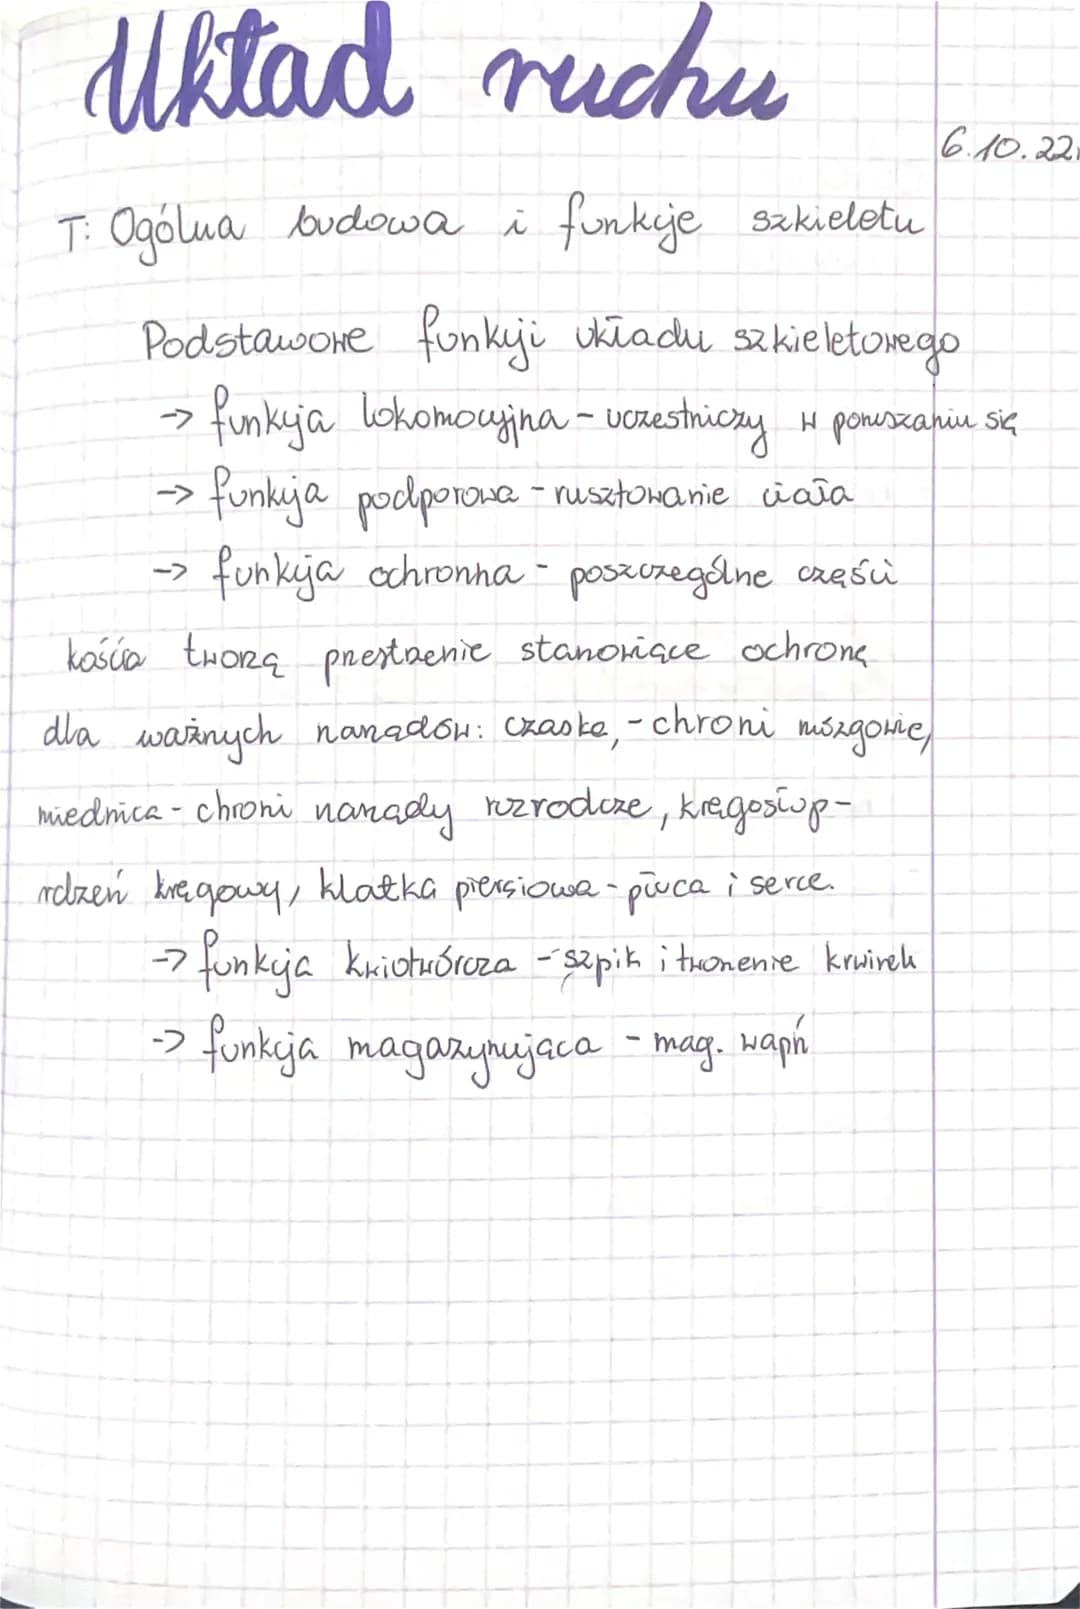 Układ ruchu
6.10.22r
T: Ogólna budowa i funkcje szkieletu
Podstawowe funkcji układu szkieletowego
→ funkcja lokomocyjna - uczestniczy w poruszaniu się
→ funkcja podporowa - rusztowanie ciała
→ funkcja ochronna - poszczególne części
kośća tworzą przestrzenie stanowiące ochronę
dla ważnych narządów: czaske, - chroni mózgowie,
miednica - chroni narządy rozrodcze, kręgosłup -
rdzeń kręgowy, klatka piersiowa - płuca i serce.
→ funkcja kriotwórcza - szpik i tworzenie krwinek
→ funkcja magazynująca - mag. wapń